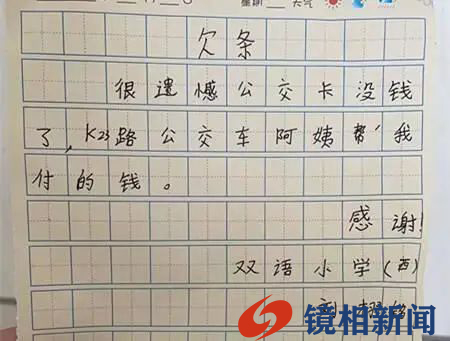 星期 天气
欠条
很遗憾公交卡没钱
了,K23路公交车阿姨帮我
付的钱。
感谢!
双语小学(西)
镜相新闻